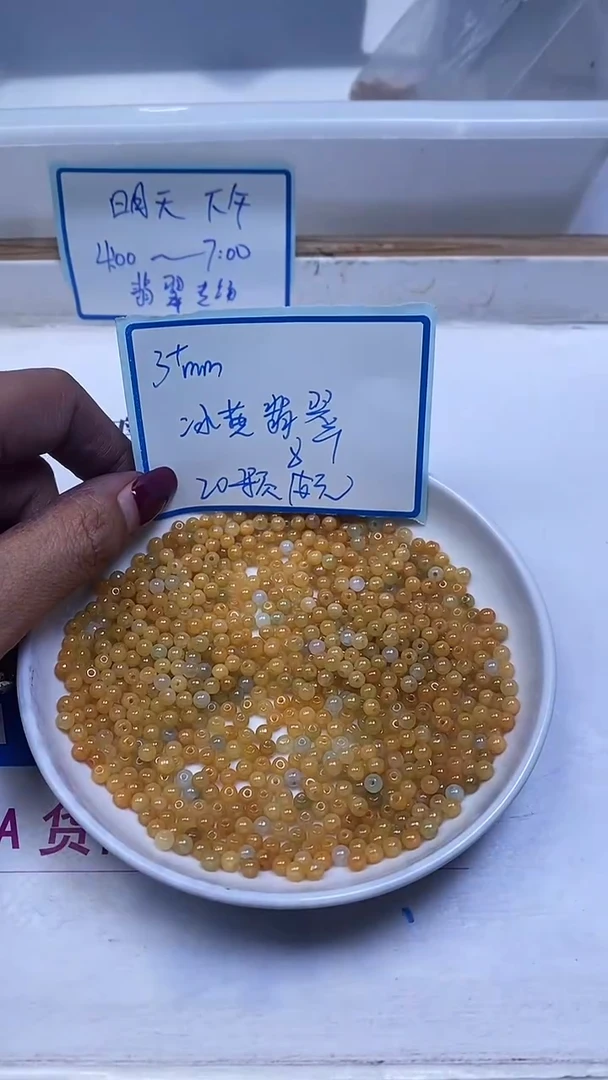 明天 下午
4:00～7:00
翡翠专场
3+mm
冰黄翡翠
20颗
A 货